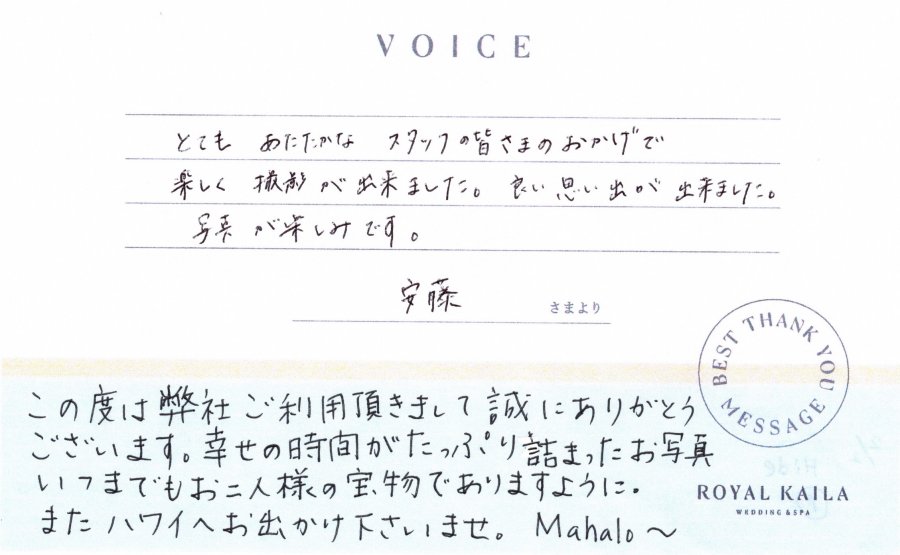 VOICE
とても あたたかな スタッフの皆さまのおかげで
楽しく 撮影が出来ました。良い思い出が出来ました。
写真が楽しみです。
安藤 さまより
BEST THANK YOU MESSAGE
この度は弊社ご利用頂きまして誠にありがとう
ございます。幸せの時間がたっぷり詰まったお写真
いつまでもお二人様の宝物でありますように。
またハワイへお出かけ下さいませ。Mahalo〜
Hide
ROYAL KAILA
WEDDING & SPA